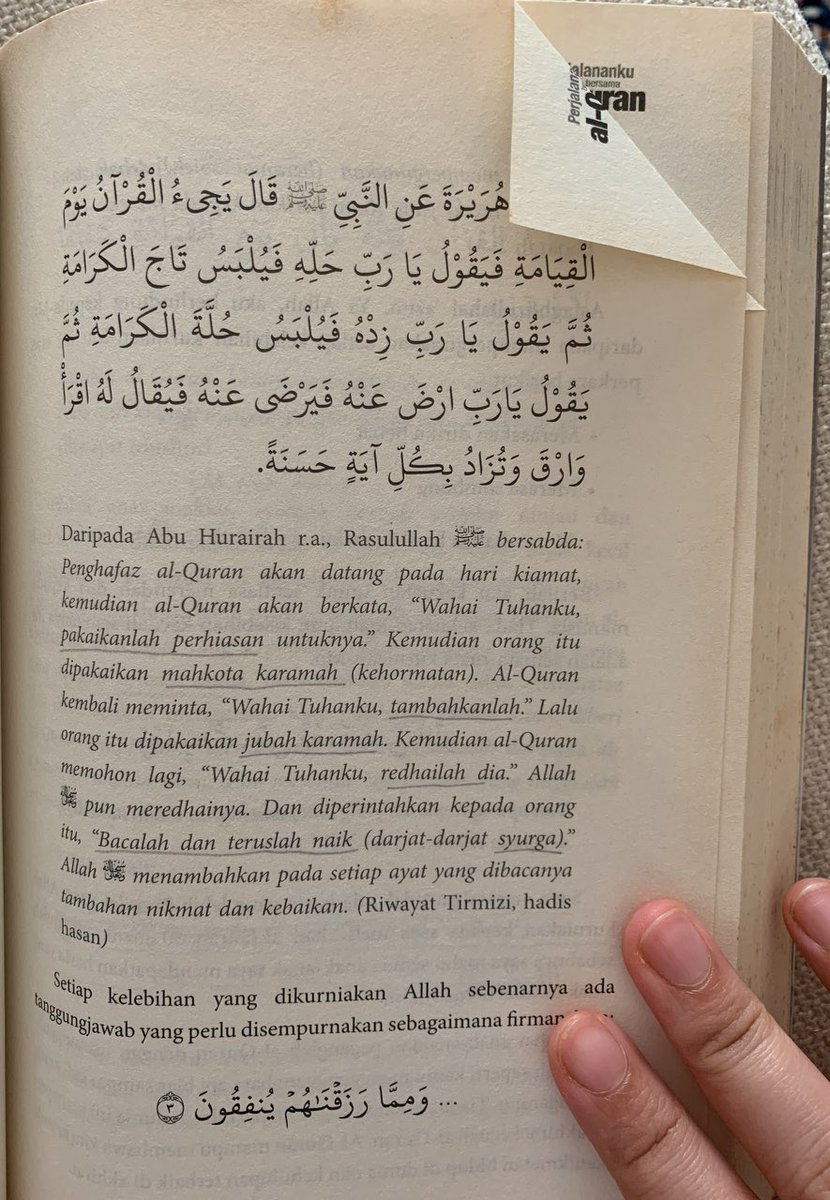 Perjalananku
bersama
al-Quran
هُرَيْرَةَ عَنِ النَّبِيِّ ﷺ قَالَ يَجِيءُ الْقُرْآنُ يَوْمَ
الْقِيَامَةِ فَيَقُوْلُ يَا رَبِّ حَلِّهِ فَيُلْبَسُ تَاجَ الْكَرَامَةِ
ثُمَّ يَقُوْلُ يَا رَبِّ زِدْهُ فَيُلْبَسُ حُلَّةَ الْكَرَامَةِ ثُمَّ
يَقُوْلُ يَارَبِّ ارْضَ عَنْهُ فَيَرْضَى عَنْهُ فَيُقَالُ لَهُ اقْرَأْ
وَارْقَ وَتُزَادُ بِكُلِّ آيَةٍ حَسَنَةً.
Daripada Abu Hurairah r.a., Rasulullah ﷺ bersabda:
Penghafaz al-Quran akan datang pada hari kiamat,
kemudian al-Quran akan berkata, “Wahai Tuhanku,
pakaikanlah perhiasan untuknya.” Kemudian orang itu
dipakaikan mahkota karamah (kehormatan). Al-Quran
kembali meminta, “Wahai Tuhanku, tambahkanlah.” Lalu
orang itu dipakaikan jubah karamah. Kemudian al-Quran
memohon lagi, “Wahai Tuhanku, redhailah dia.” Allah
ﷻ pun meredhainya. Dan diperintahkan kepada orang
itu, “Bacalah dan teruslah naik (darjat-darjat syurga).”
Allah ﷻ menambahkan pada setiap ayat yang dibacanya
tambahan nikmat dan kebaikan. (Riwayat Tirmizi, hadis
hasan)
Setiap kelebihan yang dikurniakan Allah sebenarnya ada
tanggungjawab yang perlu disempurnakan sebagaimana
... وَمِمَّا رَزَقْنَـٰهُمْ يُنفِقُونَ ٣